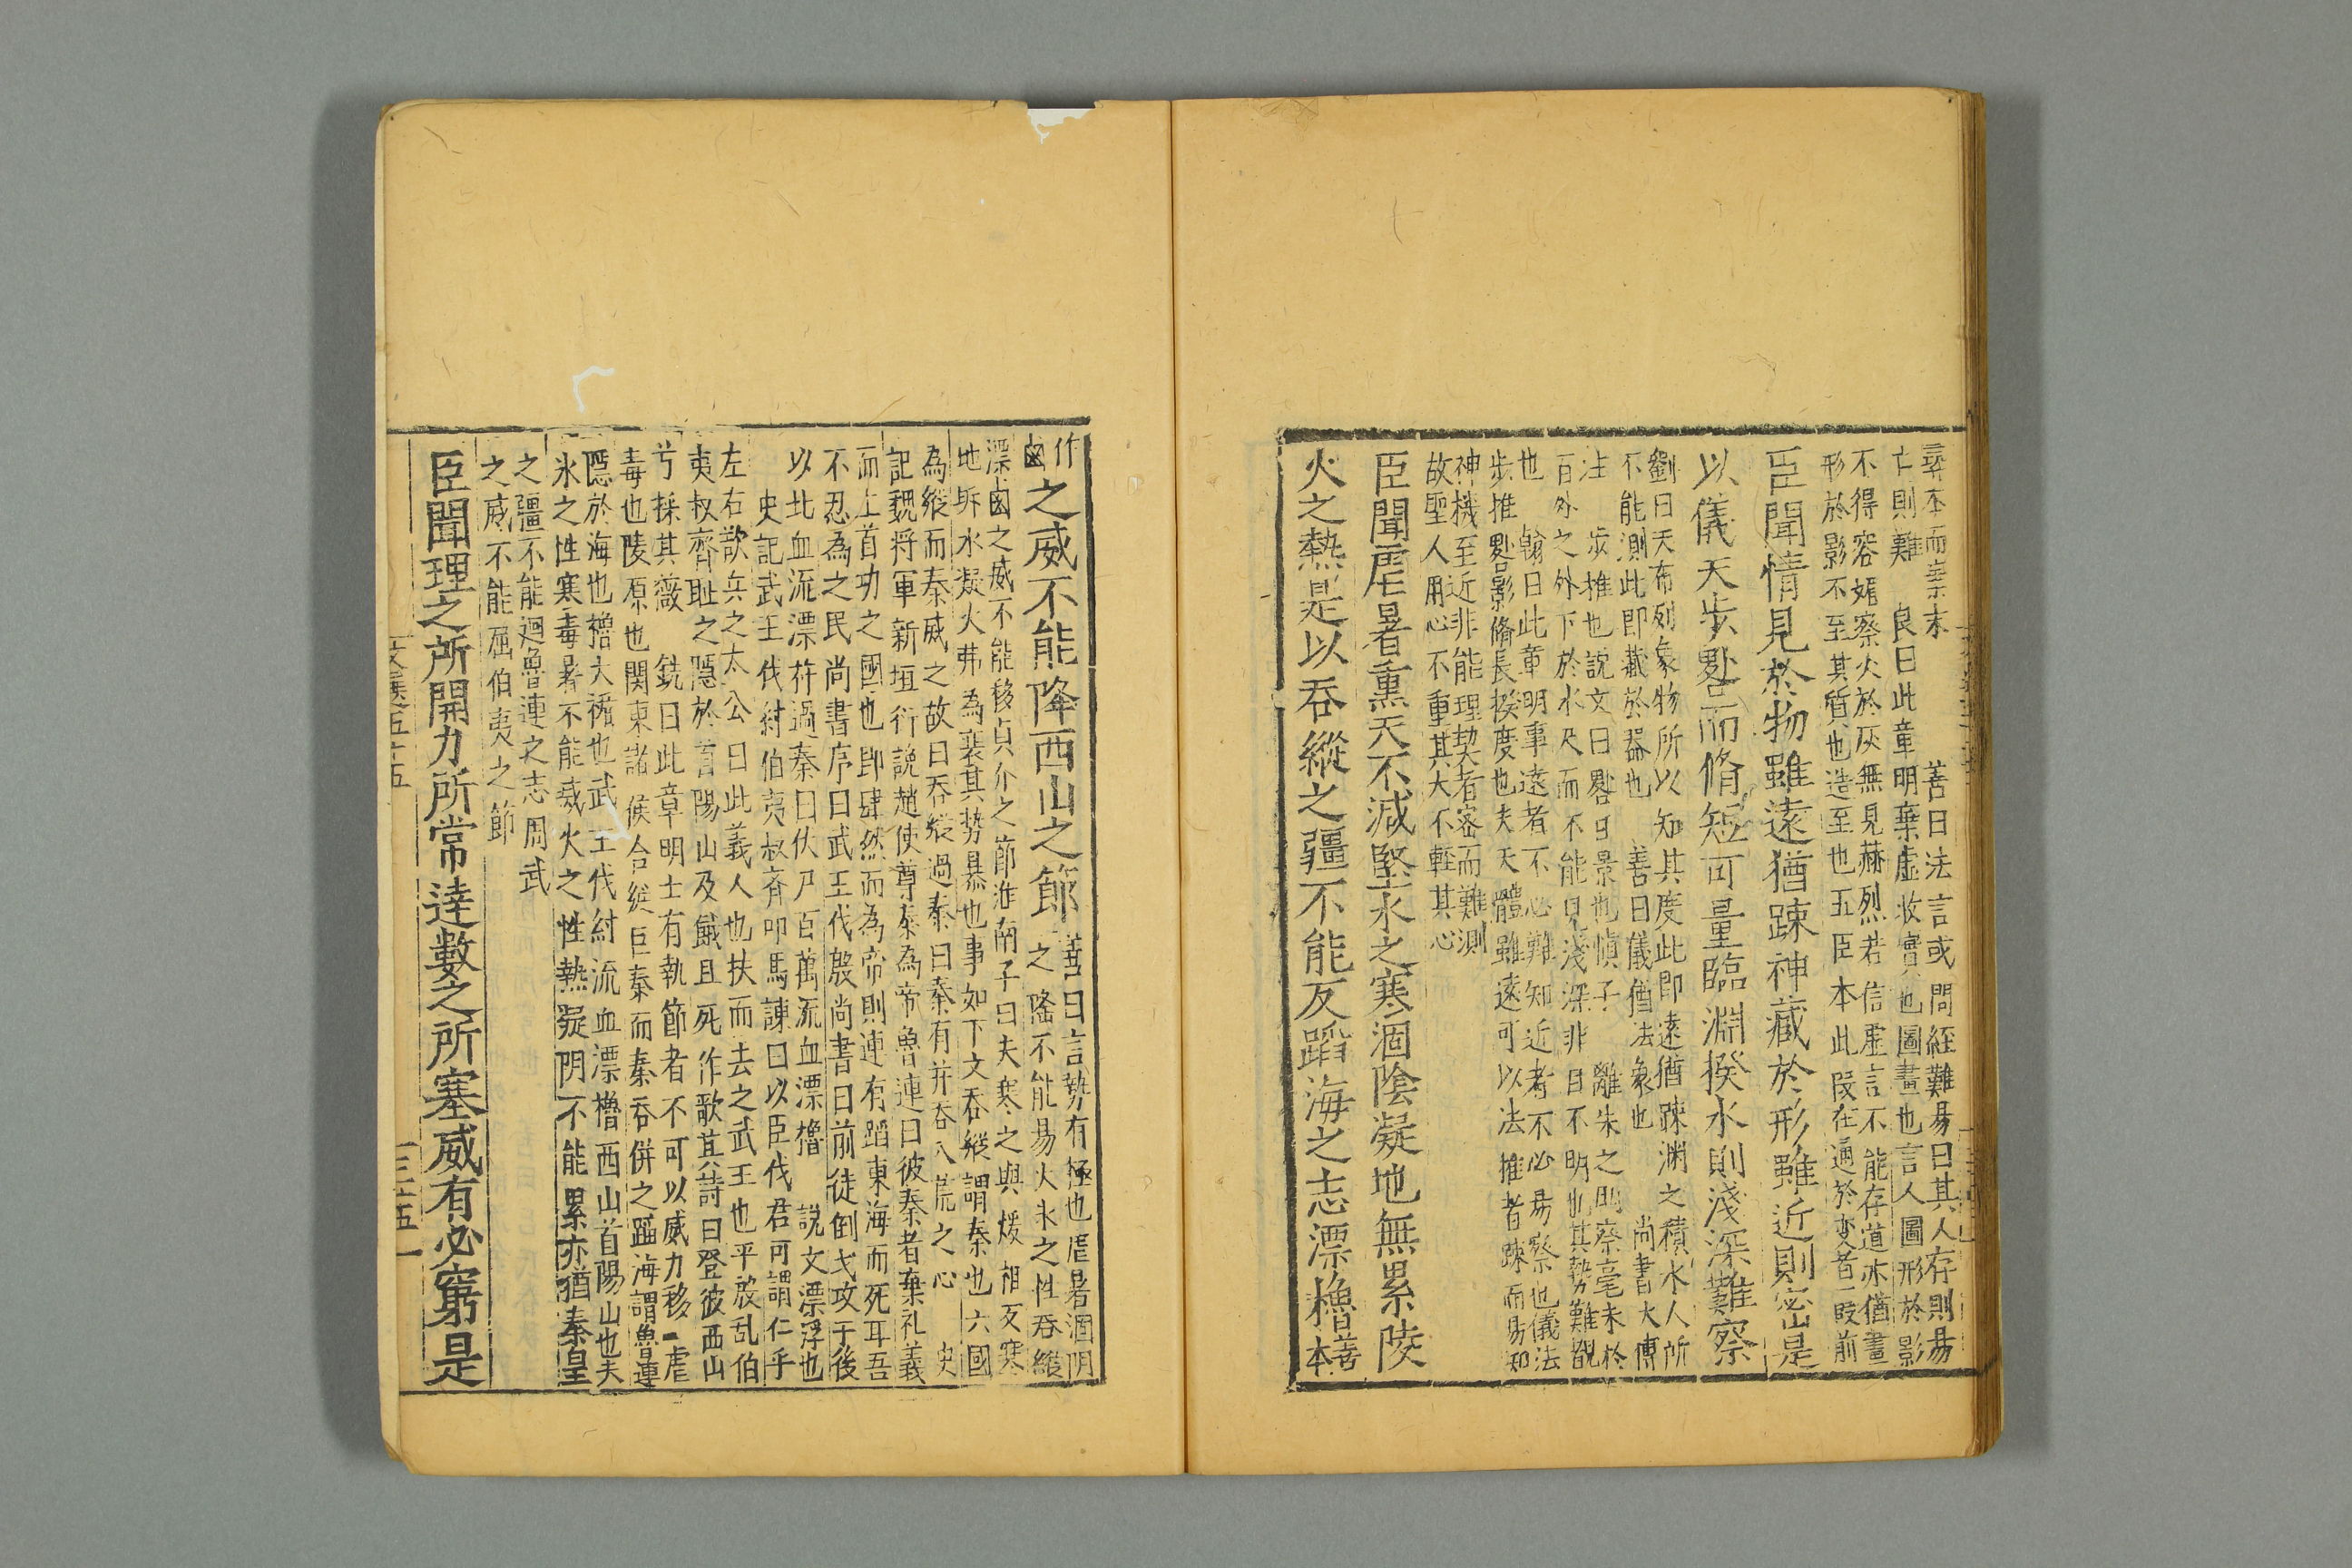 尋本而棄末　善曰法言或問經難易曰其人存則易
亡則難　良曰此章明棄虛收實也圖畫也言人圖形於影
不得容媚察火於灰無見赫烈若信虛言不能存道亦猶畫
形於影不至其質也造至也五臣本此段在通於変者一段前
臣聞情見於物雖遠猶踈神藏於形雖近則密是
以儀天步晷而脩短可量臨淵揆水則淺深難察
劉曰天布列象物所以知其度此即遠猶踈渊之積水人所
不能測此即藏於器也　善曰儀猶法象也　尚書大傳
注　步推也說文曰晷日景也慎子　離朱之明察毫未於
百外之外下於水尺而不能見淺深非目不明也其勢難覩
也　翰曰此章明事遠者不必難知近者不必易察也儀法
步推晷影脩長揆度也夫天體雖遠可以法推者踈而易知
神機至近非能理契者密而難測
故聖人用心不重其大不輕其心
臣聞虐暑熏天不減堅氷之寒涸陰凝地無累陵
火之熱是以吞縱之彊不能反蹈海之志漂櫓善本
作
鹵之威不能降西山之節善曰言勢有極也虐暑涸阴
之隆不能易火氷之性吞縱
漂鹵之威不能移貞介之節淮南子曰夫寒之與煖相反寒
地坼水凝火弗為衰其勢暴也事如下文吞縱謂秦也六國
為縱而秦威之故曰吞縱過秦曰秦有并吞八荒之心　史
記魏将軍新垣衍說趙使尊秦為帝魯連曰彼秦者棄礼義
而上首功之國也即肆然而為帝則連有蹈東海而死耳吾
不忍為之民　尚書序曰武王伐殷尚書曰前徒倒戈攻于後
以北血流漂杵過秦曰伏尸百萬流血漂櫓　說文漂浮也
史記武王伐紂伯夷叔齊叩馬諫曰以臣伐君可謂仁乎
左右欲兵之太公曰此義人也扶而去之武王也平殷乱伯
夷叔齊耻之隱於首陽山及餓且死作歌其詩曰登彼西山
兮採其薇　銑曰此章明士有執節者不可以威力移一虐
毒也陵原也関東諸候合縱巨秦而秦吞併之蹈海謂魯連
隱於海也櫓大楯也武王代紂流血漂櫓西山首陽山也夫
氷之性寒毒暑不能威火之性熱凝阴不能累亦猶秦皇
之彊不能迴魯連之志周武
之威不能屈伯夷之節
臣聞理之所開力所常達數之所塞威有必窮是